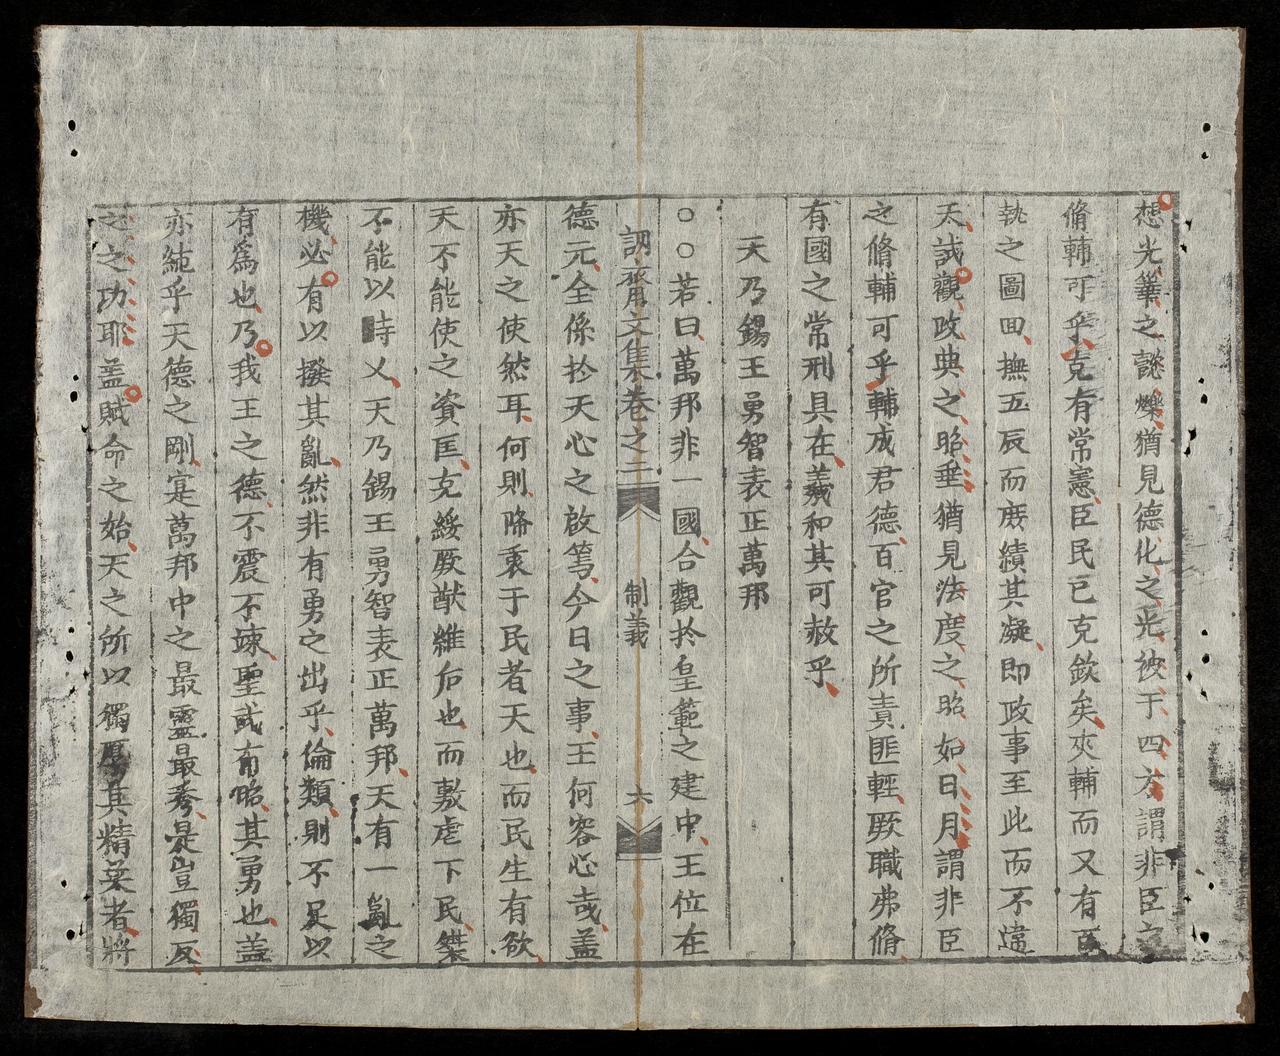 想光華之懿爍猶見德化之光被于四方謂非臣之
脩輔可乎克有常憲臣民已克欽矣夾輔而又有百
執之圖囬撫五辰而庶績其凝即政事至此而不違
天誡觀政典之昭垂猶見法度之昭如日月謂非臣
之脩輔可乎輔成君德百官之所責匪輕厥職弗脩
有國之常刑具在羲和其可赦乎
天乃錫王勇智表正萬邦
○○若曰萬邦非一國合觀扵皇範之建中王位在
訒齋文集卷之二 制義 六
德元全係扵天心之啟篤今日之事王何容心哉盖
亦天之使然耳何則降衷于民者天也而民生有欲
天不能使之資匡克綏厥猷維后也而敷虐下民桀
不能以時乂天乃錫王勇智表正萬邦天有一亂之
機必有以撥其亂然非有勇之出乎倫類則不足以
有爲也乃我王之德不震不竦聖武布昭其勇也盖
亦純乎天德之剛寔萬邦中之最靈最秀是豈獨反
之之功耶盖賦命之始天之所以獨厚其精英者將